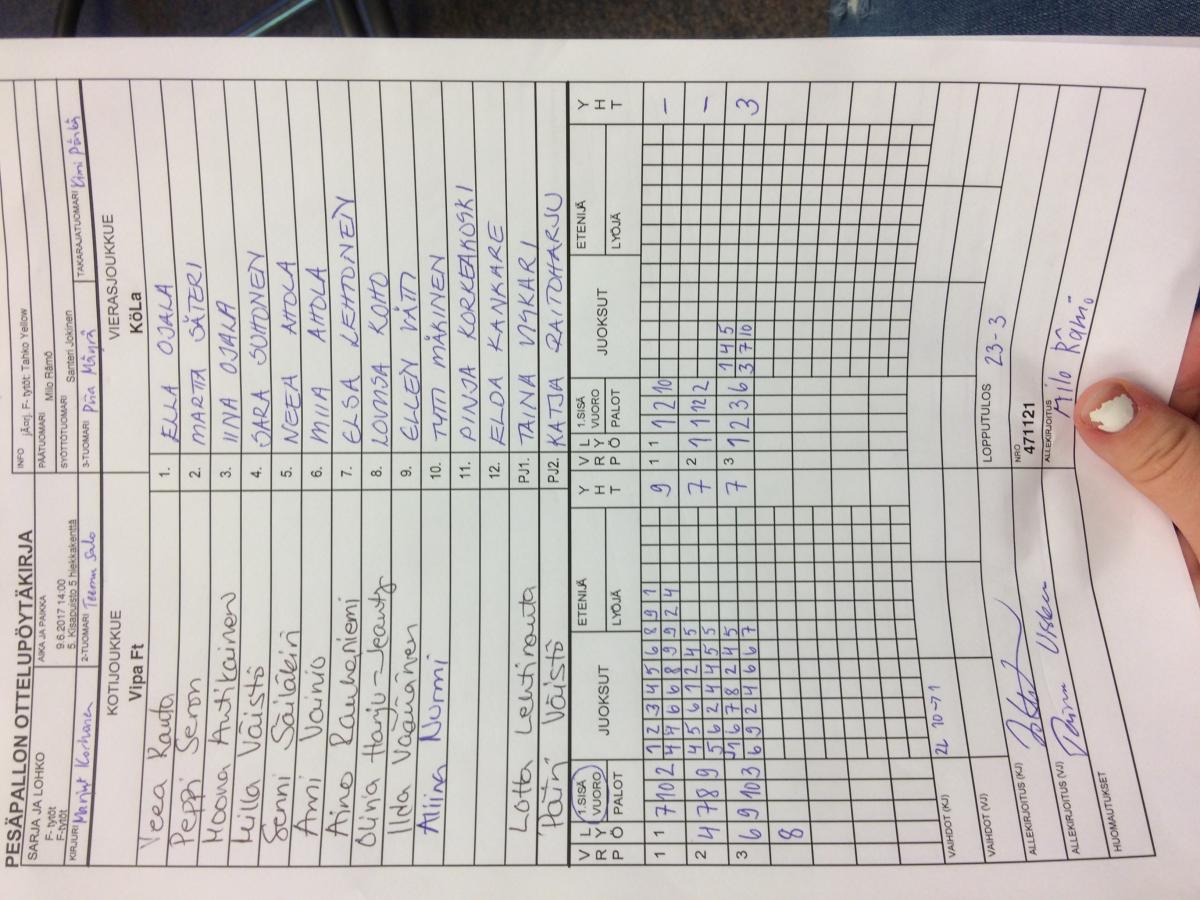 PESÄPALLON OTTELUPÖYTÄKIRJA
SARJA JA LOHKO
F- tytöt
F-tytöt
AIKA JA PAIKKA
9.6.2017 14:00
5. Kisapuisto 5 hiekkakenttä
INFO jÄorj. F- tytöt: Tahko Yellow
PÄÄTUOMARI Milo Rämö
SYÖTTÖTUOMARI Santeri Jokinen
KIRJURI Marjut Korhonen
2-TUOMARI Teemu Salo
3-TUOMARI Piia Mäyrä
TAKARAJATUOMARI Kimi Pärkä
KOTIJOUKKUE
Vipa Ft
VIERASJOUKKUE
KöLa
Veea Rauta 1. ELLA OJALA
Peppi Seron 2. MARTTA SÄTERI
Moona Antikainen 3. IINA OJALA
Milla Väistö 4. SARA SUHONEN
Senni Säiläkivi 5. NEEA AHOLA
Anni Vainio 6. MIIA AHOLA
Aino Rauhaniemi 7. ELSA LEHTONEN
Olivia Harju-Jeanty 8. LOVIISA KOHO
Iida Väänänen 9. ELLEN VÄTTI
Aliina Nurmi 10. TYTTI MÄKINEN
11. PINJA KORKEAKOSKI
12. ELDA KANKARE
Lotta Lehtinauta PJ1. TAINA VISKARI
Päivi Väistö PJ2. KATJA RAITOHARJU
V R P L Y Ö 1.SISÄ VUORO PALOT JUOKSUT ETENIJÄ LYÖJÄ Y H T V R P L Y Ö 1.SISÄ VUORO PALOT JUOKSUT ETENIJÄ LYÖJÄ Y H T
1 1 7 10 2 1 2 3 4 5 6 8 9 1 9 1 1 1 2 10 -
4 4 6 6 8 9 9 2 4
2 4 7 8 9 4 5 6 1 2 4 5 7 2 1 1 12 -
5 6 2 4 4 5 5
3 6 9 10 3 1 6 7 8 2 4 5 7 3 1 2 3 6 1 4 5 3
6 9 2 4 6 6 7 3 7 10
8
VAIHDOT (KJ) 2L 10-71
VAIHDOT (VJ)
LOPPUTULOS 23-3
ALLEKIRJOITUS (KJ)
NRO
471121
ALLEKIRJOITUS (VJ)
ALLEKIRJOITUS
Rämö
HUOMAUTUKSET